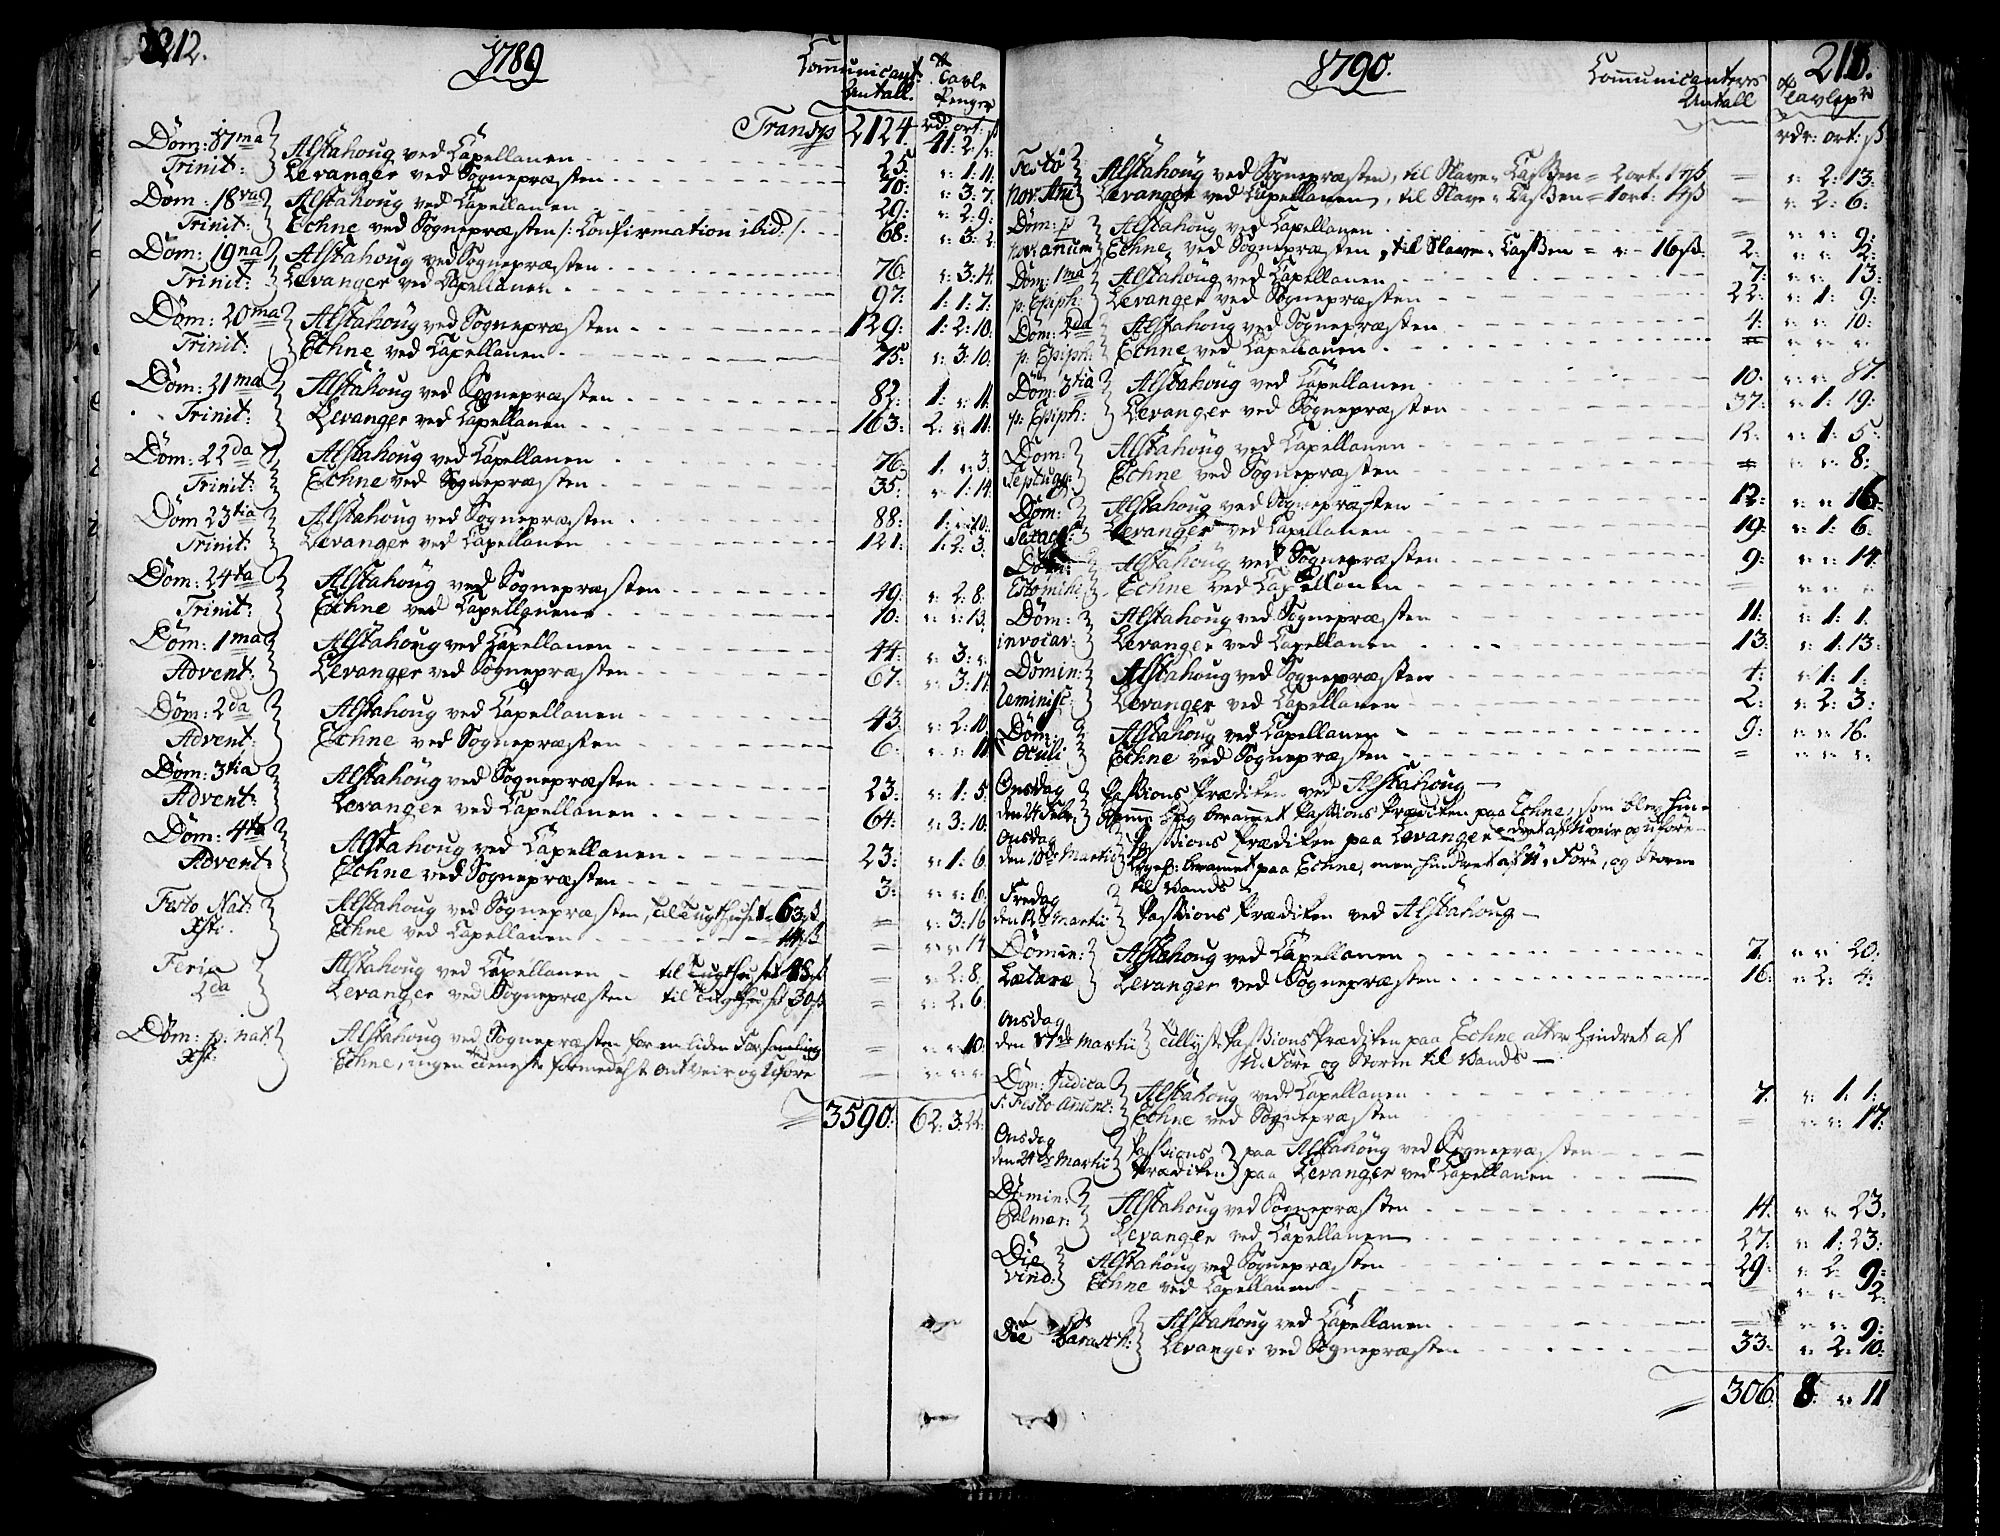 212.
1789
Communicant: Antall. Tavle Penger
Transp 2124 rd: ort: ß
41: 2: ":
Dom: 17ma Trinit: Alstahoug ved Capellanen 25: ": 1: 11.
Levanger ved Sognepræsten 70: ": 3: 7.
Dom: 18va Trinit: Alstahoug ved Capellanen 29: ": 2: 9:
Echne ved Sognepræsten /: Confirmation ibid: /. 68: ": 3: 2.
Dom: 19na Trinit: Alstahoug ved Sognepræsten 76: ": 3: 14.
Levanger ved Capellanen 97: 1: 1: 7:
Dom: 20ma Trinit: Alstahoug ved Sognepræsten 129: 1: 2: 10.
Echne ved Capellanen 75: ": 3: 10.
Dom: 21ma Trinit: Alstahoug ved Sognepræsten 82: 1: ": 11.
Levanger ved Capellanen 163: 2: ": 11:
Dom: 22da Trinit: Alstahoug ved Capellanen 76: 1: ": 3:
Echne ved Sognepræsten 35: ": 1: 14.
Dom 23tia Trinit: Alstahoug ved Sognepræsten 88: 1: ": 10.
Levanger ved Capellanen 121: 1: 2: 3.
Dom: 24ta Trinit: Alstahoug ved Sognepræsten 49: ": 2: 8.
Echne ved Capellanen 10: ": ": 13.
Dom: 1ma Advent: Alstahoug ved Capellanen 44: ": 3: ":
Levanger ved Sognepræsten 67: ": 3: 17.
Dom: 2da Advent: Alstahoug ved Capellanen 43. ": 2: 10.
Echne ved Sognepræsten 6. ": ": 11.
Dom: 3tia Advent: Alstahoug ved Sognepræsten 23: ": 1: 5.
Levanger ved Capellanen 64: ": 3: 10.
Dom: 4ta Advent: Alstahoug ved Capellanen 23: ": 1: 6.
Echne ved Sognepræsten 3: ": ": 6.
Festo Nat: Xsti: Alstahoug ved Sognepræsten, til Tugthuset 63ß = ": 3: 16
Echne ved Capellanen 14ß = ": ": 14
Feria 2da Alstahoug ved Capellanen til Tugthuset 18ß = ": 2: 8.
Levanger ved Sognepræsten til Tugthuset 30ß = ": 2: 6.
Dom: p: nat: Xsti: Alstahoug ved Sognepræsten for en liden Forsamling = ": ": 10.
Echne, ingen tieneste formedelst ont Veir og Uføre = ": ": ":
3590: 62: 3: 22:
1790.
Communicanters Antall Tavlep:
rdr: ort: ß
Festo nov: Ani Alstahoug ved Sognepræsten, til Slave-Cassen = 2 ort: 19ß = ": 2: 13.
Levanger ved Capellanen, til Slave-Cassen = 1 ort: 4ß = ": 2: 6:
Dom: p: nov: anum Alstahoug ved Capellanen = ": ": 9:
Echne ved Sognepræsten, til Slave-Cassen = " - 16ß. 2: ": ": 2:
Dom: 1ma p: Epiph: Alstahoug ved Capellanen 7: ": ": 13:
Levanger ved Sognepræsten 22: ": 1: 9:
Dom: 2da p: Epiph: Alstahoug ved Sognepræsten 4: ": ": 10:
Echne ved Capellanen = ": ": ":
Dom: 3tia p: Epiph: Alstahoug ved Capellanen 10. ": ": 17.
Levanger ved Sognepræsten 37: ": 1: 19:
Dom: Septuag: Alstahoug ved Capellanen 12. ": 1: 5:
Echne ved Sognepræsten = ": ": 8:
Dom: Sexag: Alstahoug ved Sognepræsten 12: ": ": 16.
Levanger ved Capellanen 19: ": 1: 6:
Dom: Estomihi Alstahoug ved Sognepræsten 9: ": ": 14.
Echne ved Capellanen = ": ": ":
Dom: invocav: Alstahoug ved Sognepræsten 11: ": 1: 1.
Levanger ved Capellanen 13. ": 1: 13:
Domin: Reminisc: Alstahoug ved Sognepræsten 4: ": 1: 1:
Levanger ved Capellanen 2: ": 2: 3:
Dom: Oculi Alstahoug ved Capellanen 9: ": ": 16.
Echne ved Sognepræsten = ": ": ":
Onsdag den 24 Febr: Passions Prædiken ved Alstahoug
Samme Dag berammet Passions Prædiken paa Echne, som blev hindret af Uveir og uføre
Onsdag den 10de Martii Passions Prædiken paa Levanger
berammet paa Echne, men hindret af U-Føre, og Storm til Vands
Fredag den 12 Martii Passions Prædiken ved Alstahoug
Domin: Lætare Alstahoug ved Capellanen 7. ": ": 20.
Levanger ved Sognepræsten 16: ": 2: 4:
Onsdag den 17de Martii Tillyst Passions Prædiken paa Echne atter hindret af
U-Føre og Storm til Vands
Dom: Judica s: Festo Anunt: Alstahoug ved Capellanen 7. ": 1: 1:
Echne ved Sognepræsten = ": ": 17:
Onsdag den 24de Martii Passions Prædiken paa Alstahoug ved Sognepræsten
paa Levanger ved Capellanen
Domin: Palmar: Alstahoug ved Sognepræsten 14. ": ": 23.
Levanger ved Capellanen 27: ": 1: 23:
Die Virid: Alstahoug ved Sognepræsten 29: ": 2: 9:
Echne ved Capellanen = ": ": 2:
Die Parasch: Alstahoug ved Capellanen = ": ": 9:
Levanger ved Sognepræsten 33: ": 2: 10:
306 8: ": 11